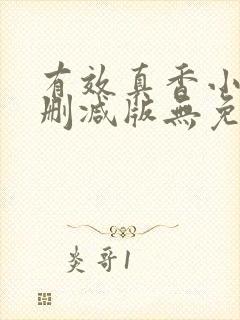 有效真香小
删减版無免
炎哥1